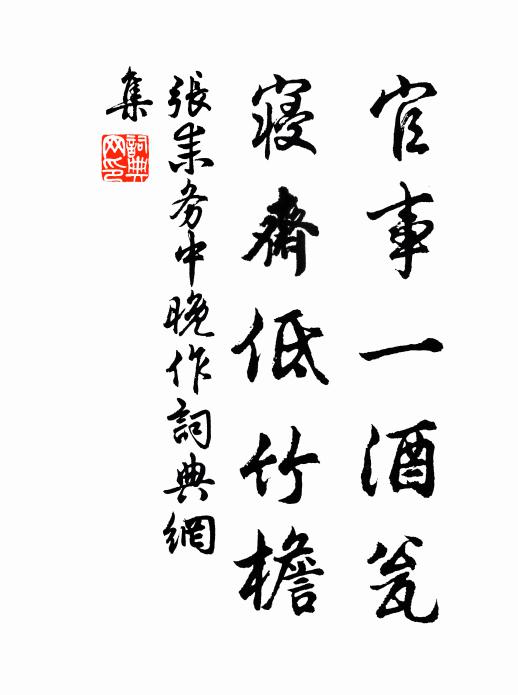 官事一酒瓮
寝齋低竹檐
張耒务中晚作詞典網
集
詞典网印